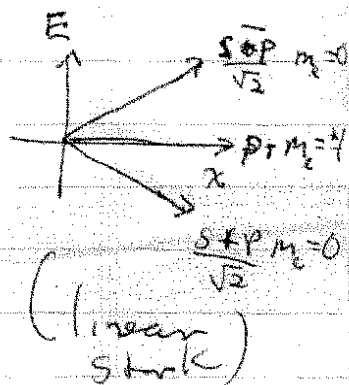 E
s ∓ p / √2 m_ℓ=0
p, m_ℓ=±1
x
s ± p / √2 m_ℓ=0
(linear
stark)